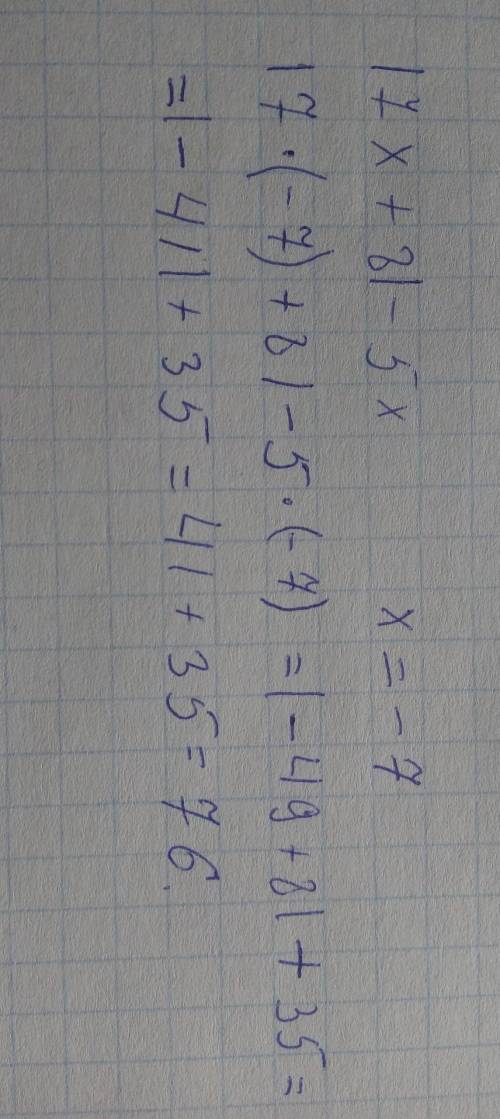 |7x+8|-5x x=-7
|7·(-7)+8|-5·(-7)=|-49+8|+35=
=|-41|+35=41+35=76.